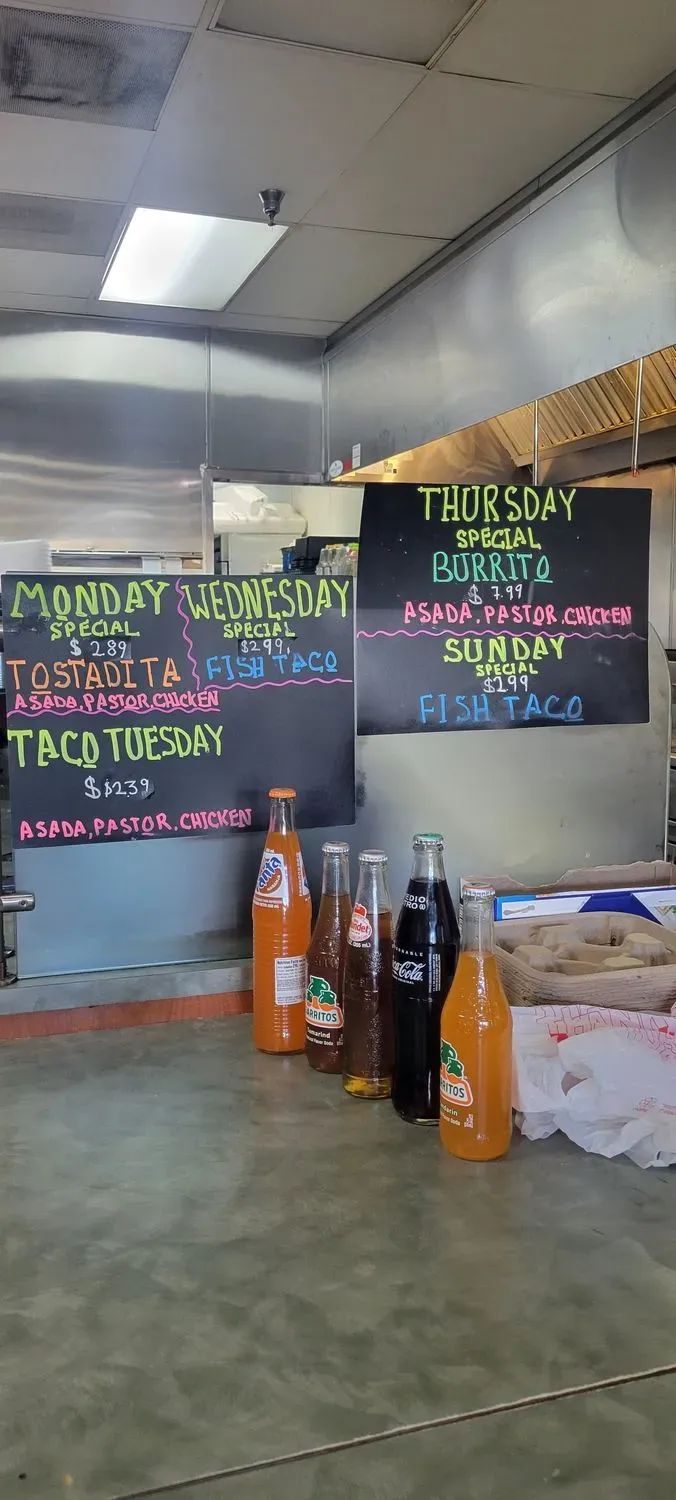 MONDAY
SPECIAL
$ 2.89
TOSTADITA
ASADA, PASTOR, CHICKEN
WEDNESDAY
SPECIAL
$2.99
FISH TACO
TACO TUESDAY
$ $2.39
ASADA, PASTOR, CHICKEN
THURSDAY
SPECIAL
BURRITO
$ 7.99
ASADA, PASTOR, CHICKEN
SUNDAY
SPECIAL
$2.99
FISH TACO
anta
Nutrition Facts
ARRITOS
amarind
ndet
EDIO
TRO
Coca-Cola
RITOS
darin